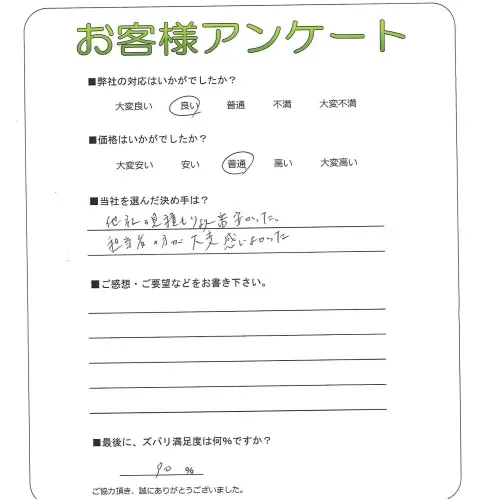 お客様アンケート
■弊社の対応はいかがでしたか？
大変良い 良い 普通 不満 大変不満
■価格はいかがでしたか？
大変安い 安い 普通 高い 大変高い
■当社を選んだ決め手は？
他社の見積もりより若干安かった。
担当者の方が大変感じよかった
■ご感想・ご要望などをお書き下さい。
■最後に、ズバリ満足度は何%ですか？
90 %
ご協力頂き、誠にありがとうございました。